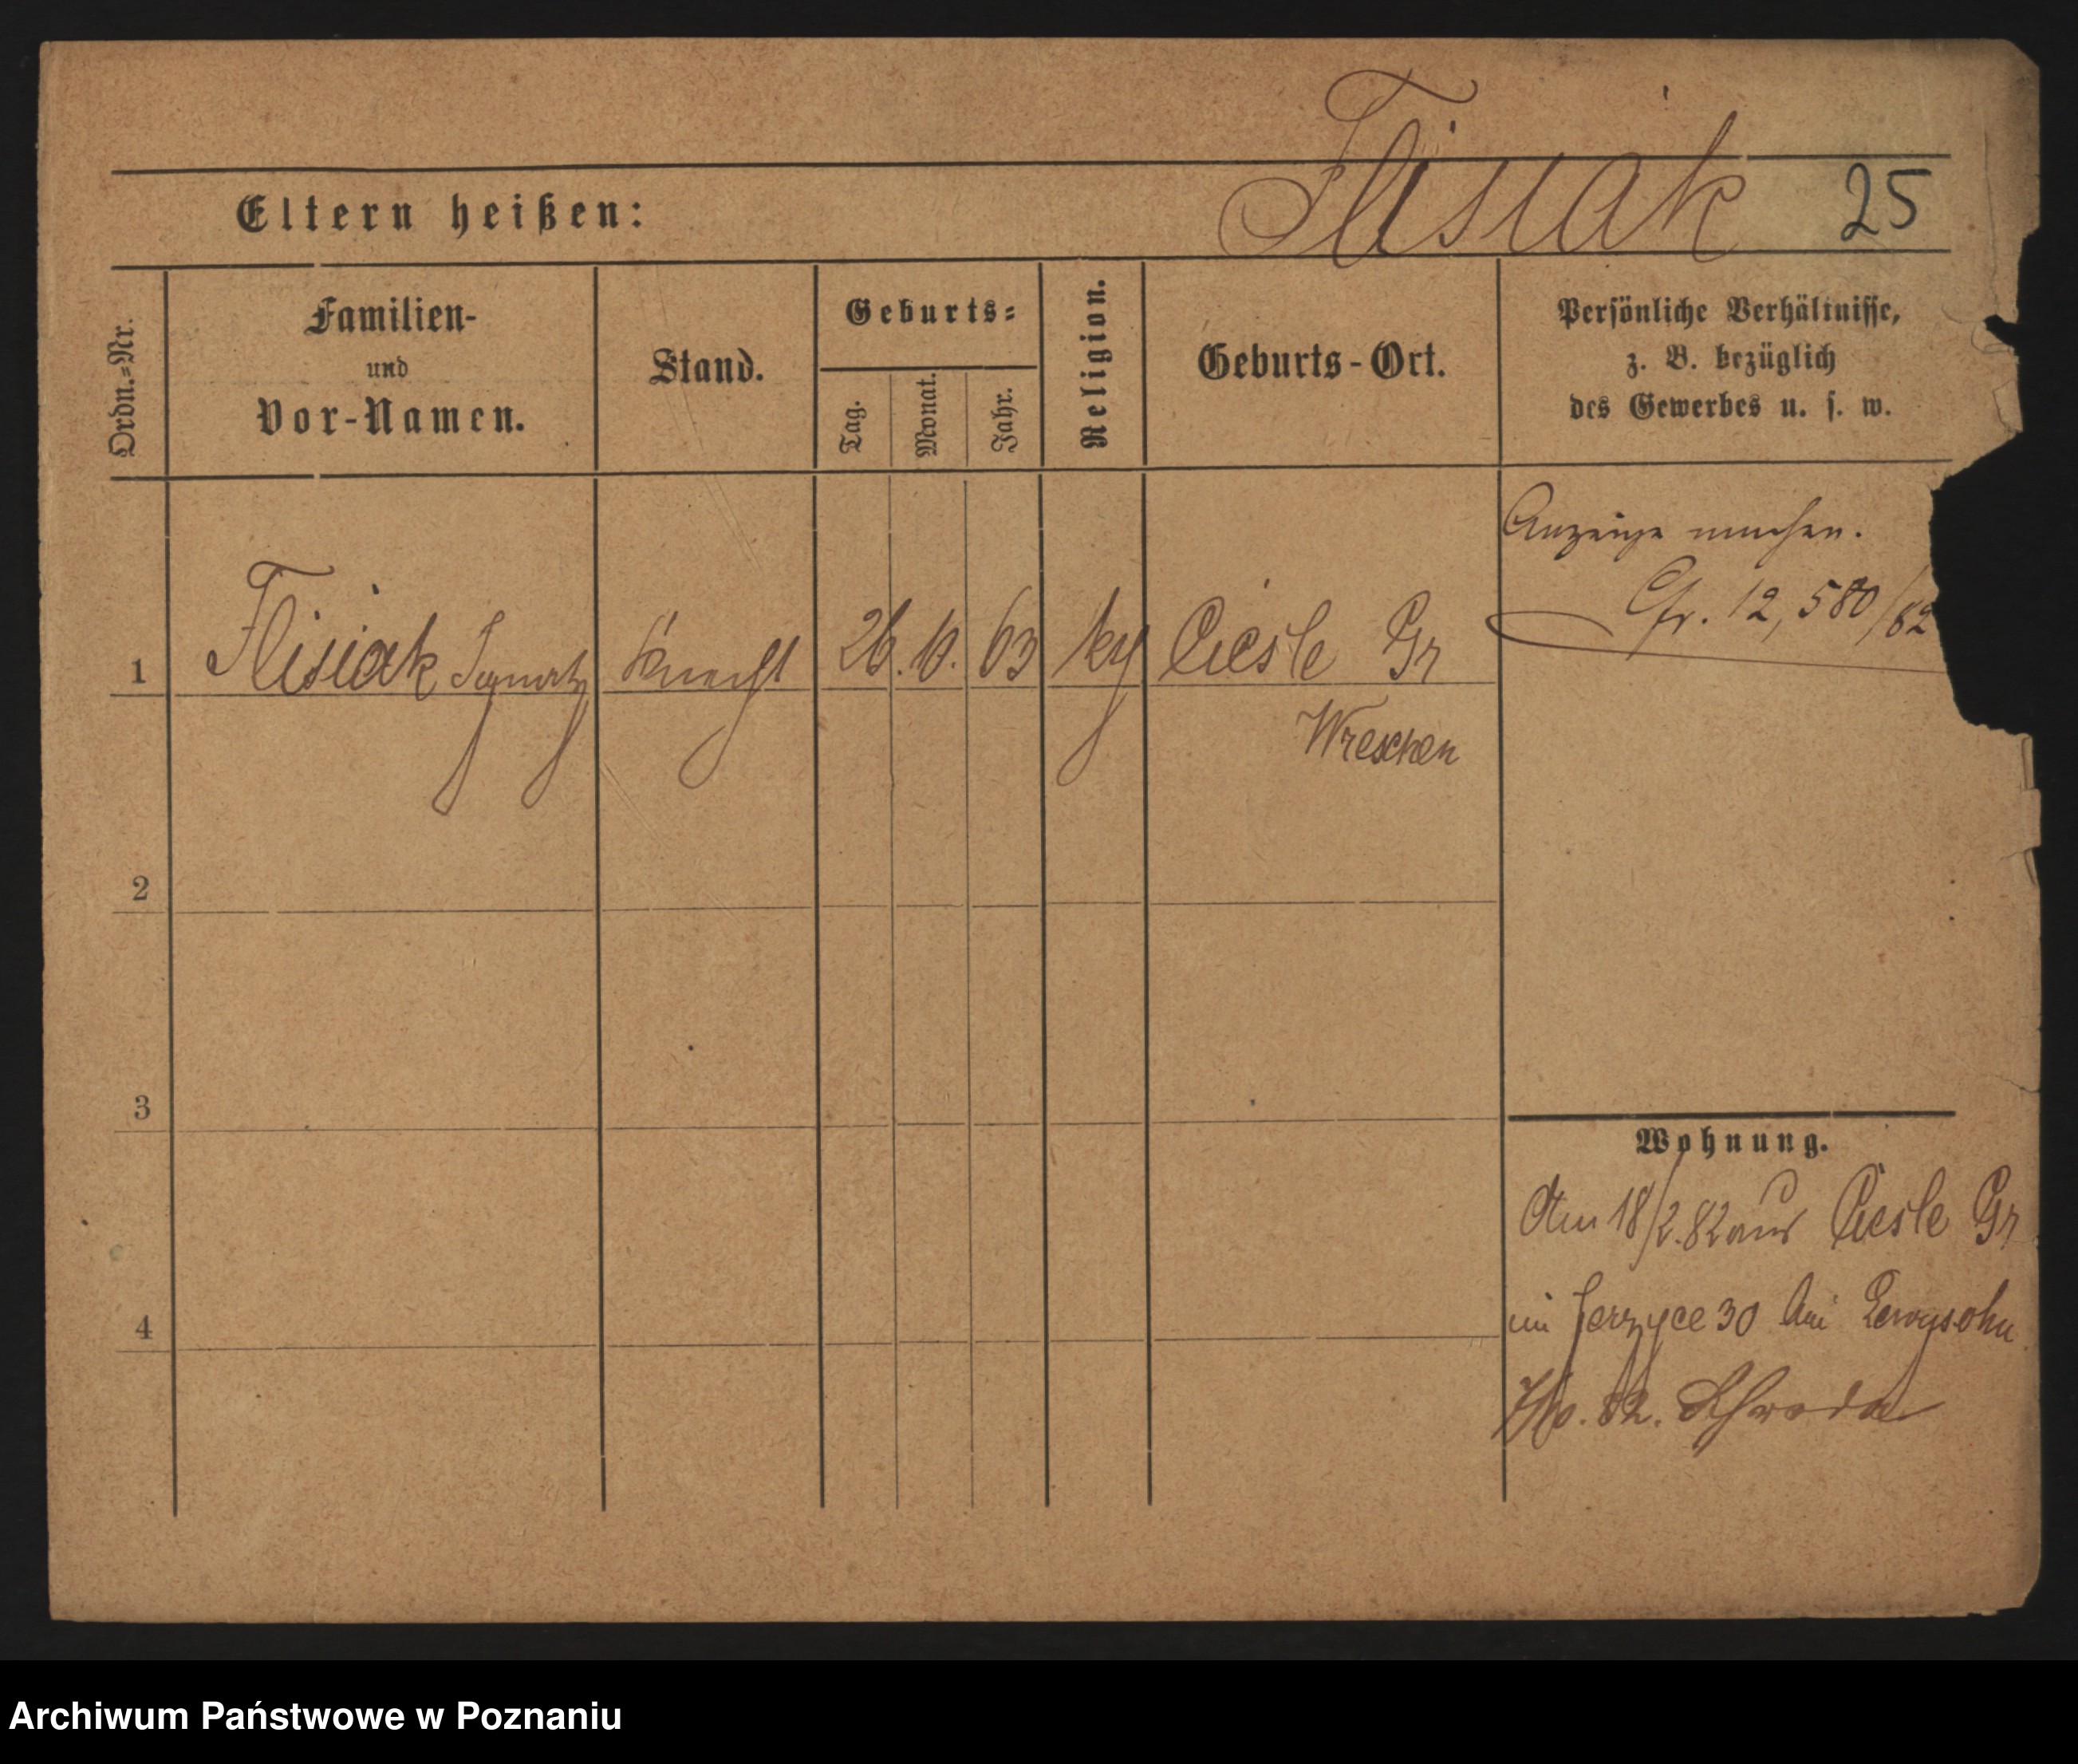 Flisiak 25
Eltern heißen:
Ordn.=Nr.
Familien-
und
Vor-Namen.
Stand.
Geburts=
Tag.
Monat.
Jahr.
Religion.
Geburts-Ort.
Persönliche Verhältnisse,
z. B. bezüglich
des Gewerbes u. s. w.
Anzeige machen.
Cfr. 12,580/82
1 Flisiak Ignatz Knecht 26. 10. 63 kg Ciesle Gr
Wreschen
2
3
4
Wohnung.
Am 18/2.82 aus Ciesle Gr
in Jerzyce 30 bei Lewysohn
82. Schroda
Archiwum Państwowe w Poznaniu